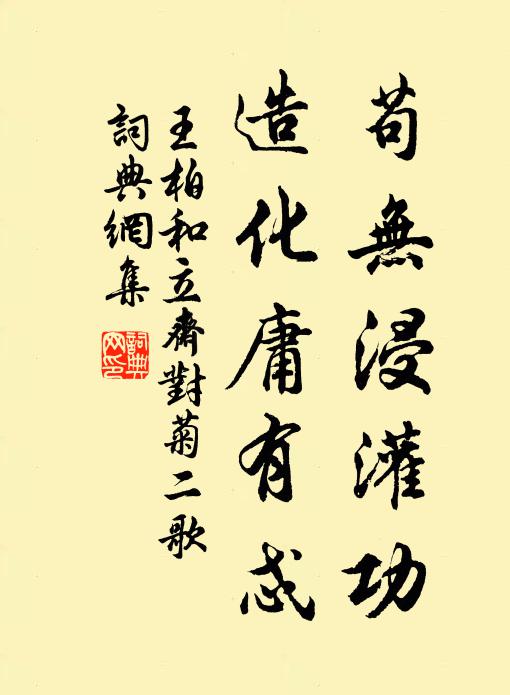 苟無浸灌功
造化庸有忒
王柏和立齋對菊二歌
詞典網集
詞典网印